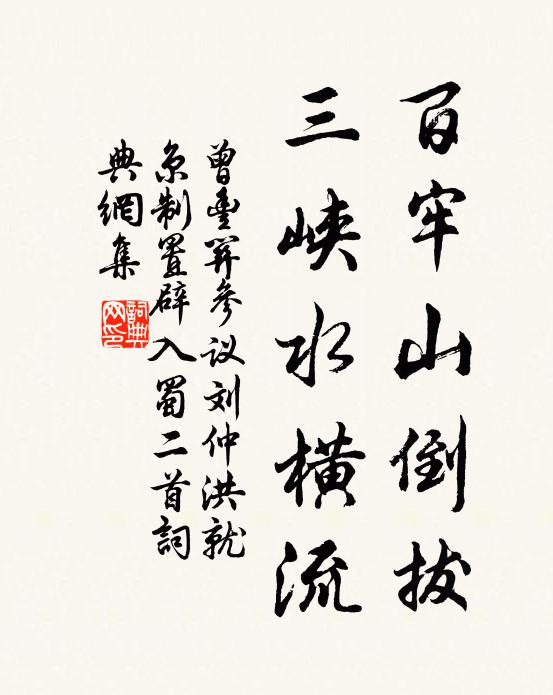 百牢山倒拔
三峡水横流
曾丰羿参议刘仲洪就
京制置辟入蜀二首詞
典網集
詞典网印